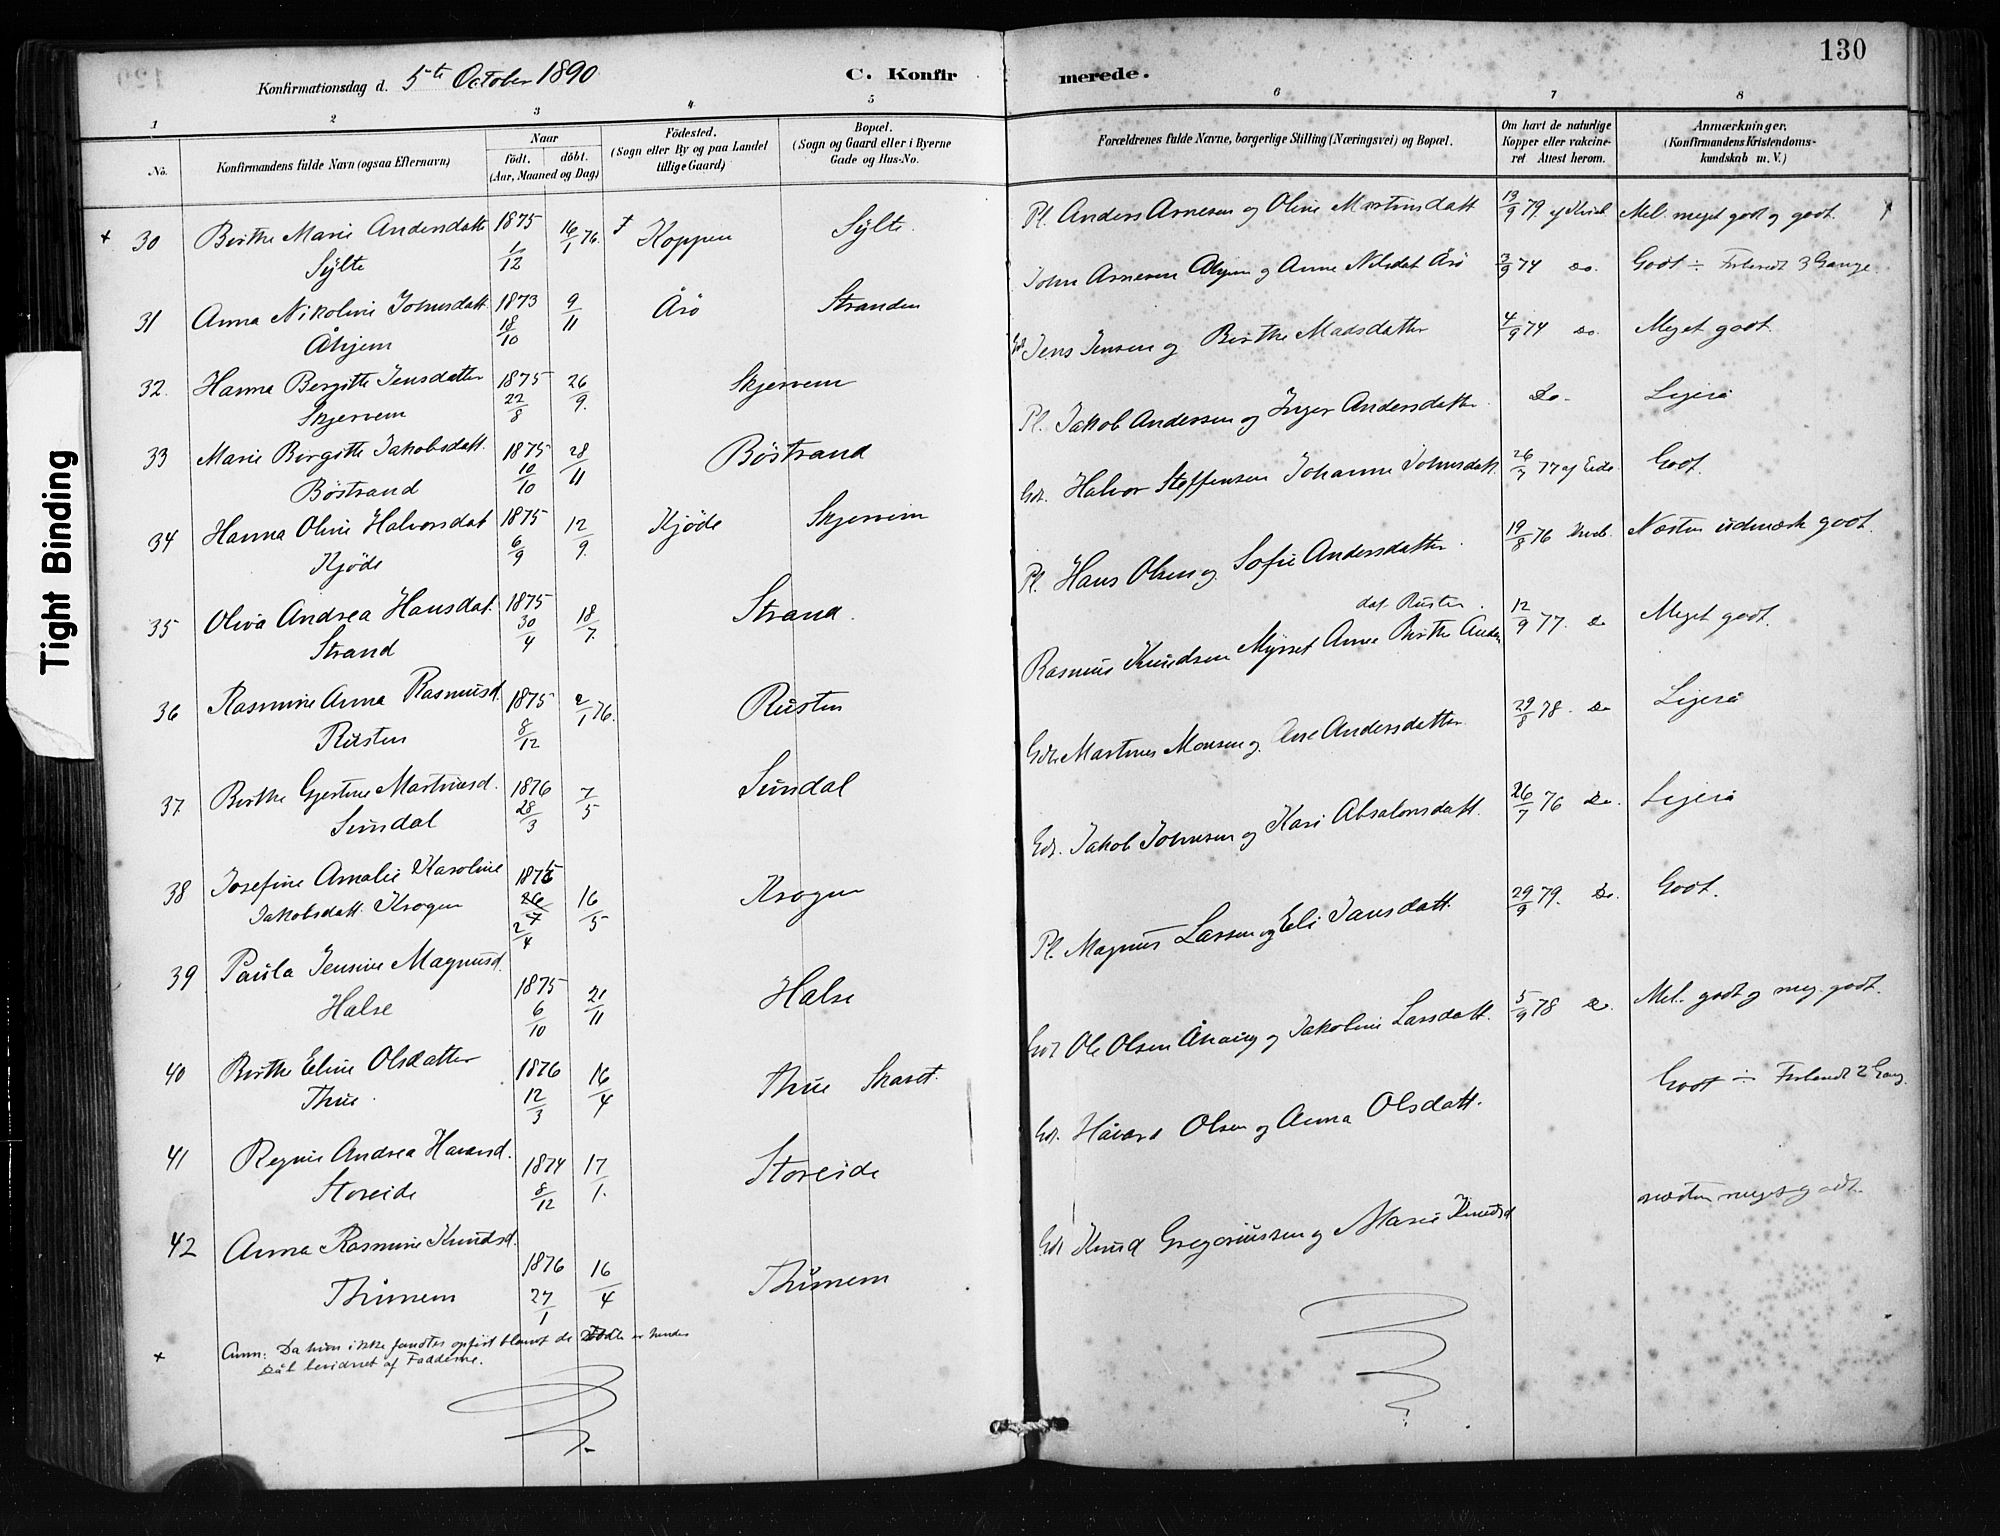 130
Konfirmationsdag d. 5te October 1890 C. Konfirmerede.
1 2 3 4 5 6 7 8
No.
Konfirmandens fulde Navn (ogsaa Efternavn)
Naar
födt. döbt.
(Aar, Maaned og Dag)
Födested.
(Sogn eller By og paa Landet
tillige Gaard)
Bopæl.
(Sogn og Gaard eller i Byerne
Gade og Hus-No.
Forældrenes fulde Navne, borgerlige Stilling (Næringsvei) og Bopæl.
Om havt de naturlige
Kopper eller vakcine-
ret Attest herom.
Anmærkninger.
(Konfirmandens Kristendoms-
kundskab m. V.)
+ 30 Birthe Marie Andersdatt 1875 16/1 76. Koppen Sylte. Pl. Anders Arnesen og Oline Martinsdatt 13/9 79. Mel. meget godt og godt.
Sylte 1/12
31 Anna Nikoline Johnsdatt 1873 9/11 Årö Stranden John Arnesen Åhjem og Anne Nilsdat Årö 3/9 74 Do. Godt ÷ Forberedt 3 Gange
Åhjem 18/10
32. Hanna Bergitte Jensdatter 1875 26/9. Skjervem Jens Jensen og Birthe Madsdatter 4/9 74 Do. Meget godt
Skjervem 22/8
33 Marie Birgitte Jakobsdatt. 1875 28/11 Böstrand Pl. Jakob Andersen og Inger Andersdatter. Do. Ligeså
Böstrand 10/10
34 Hanna Oline Halvorsdat 1875 12/9. Kjöde Skjervem Gdr. Halvor Steffensen Johanne Johnsdatt. 26/7 77 af Eide Godt.
Kjöde 6/9
35 Oliva Andrea Hansdat. 1875 18/7. Strand. Pl. Hans Olsen og Sofie Andersdatter. 19/8 76 Næsten udmærk. godt.
Strand 30/4
36 Rasmine Anna Rasmusd. 1875 2/1 76. Rusten Rasmus Knudsen Myrset Anne Birthe Anders
dat. Rusten. 12/9 77. Do Meget godt.
Rusten 8/12
37 Birthe Gjertine Martinusd. 1876 7/5 Sundal Gdr. Martinus Monsen og Ane Andersdatter. 29/8 78. Do Ligeså
Sundal 28/3
38 Josefine Amalie Karoline 1876 16/5 Krogen Gdr. Jakob Johnsen og Kari Absalonsdatt. 26/7 76 Do. Ligeså
Jakobsdatt. Krogen 2/4
39 Paula Jensine Magnusd. 1875 21/11 Halse Pl. Magnus Larsen og Eli Jansdatt. 29/9 79. Do. Godt.
Halse 6/10
40 Birthe Eline Olsdatter 1876 16/4 Thue Skaret. Gdr Ole Olsen og Jakobine Larsdatt. 5/9 78 Do. Mel. godt og meg. godt.
Thue. 12/3
41 Regine Andrea Havardsd. 1874 17/1. Storeide Gdr. Håvard Olsen og Anna Olsdatt. Godt ÷ Forberedt 2 Gang.
Storeide 8/12
42 Anna Rasmine Knudsd. 1876 16/4 Thunem Gdr Knud Gregoriussen og Marie Knudsd næsten meget godt
Thunem 27/1
+ Anm: Da hun ikke fandtes opfört blandt de Födte er hendes
Dåb bevidnet af Fadderne.
Tight Binding